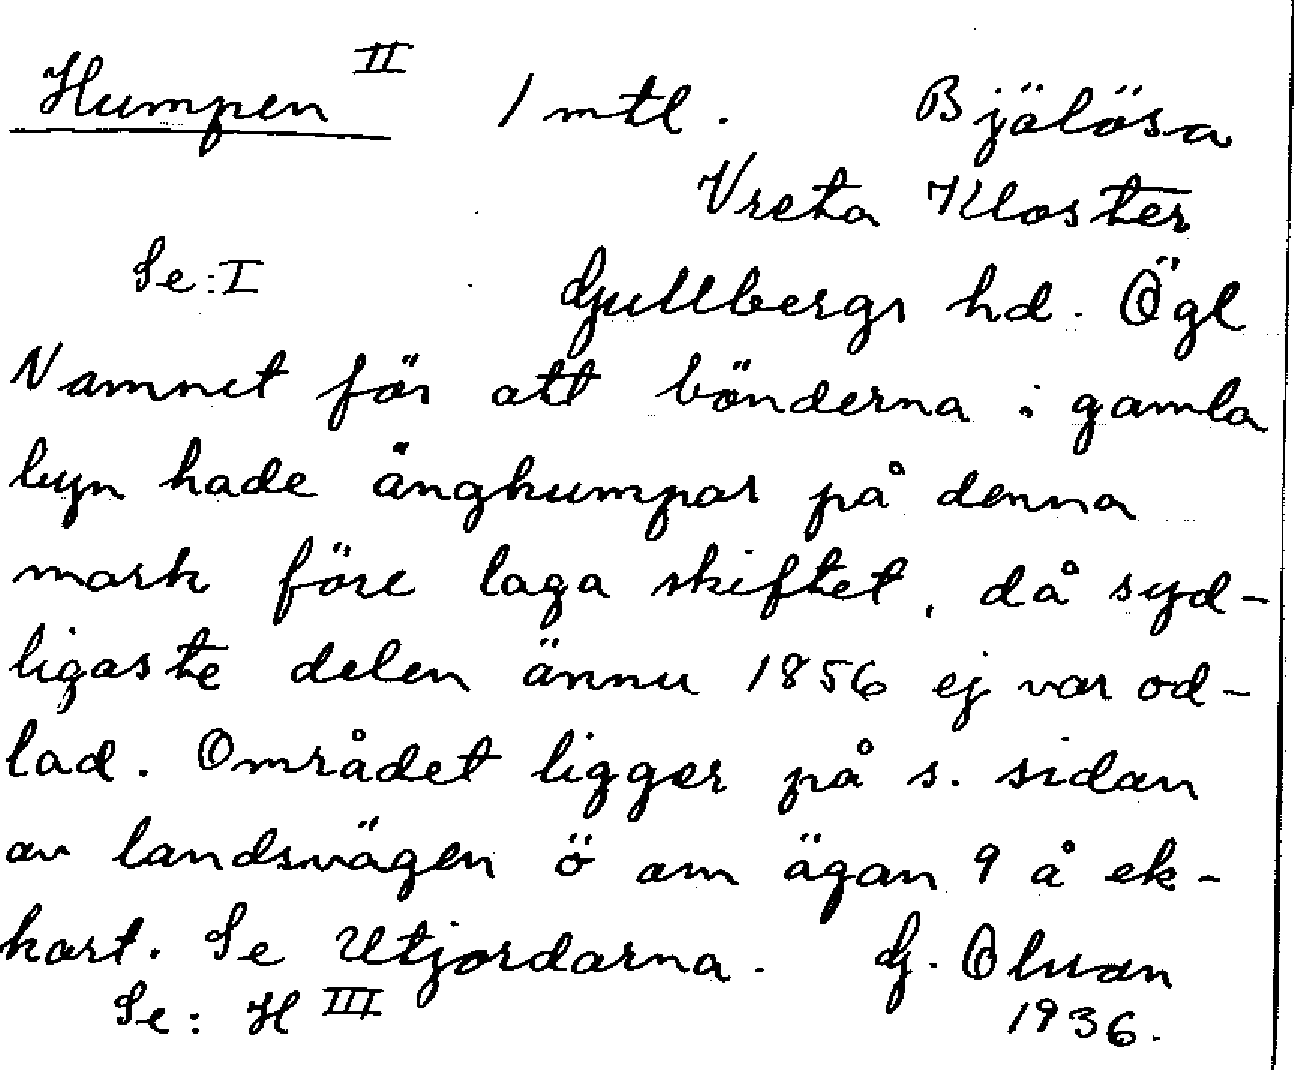 Humpen II 1 mtl. Bjälösa
Vreta Kloster
Se: I Gullbergs hd. Ögl
Namnet för att bönderna i gamla
byn hade änghumpar på denna
mark före laga skiftet, då syd-
ligaste delen ännu 1856 ej var od-
lad. Området ligger på s. sidan
av landsvägen ö om ägan 9 å ek-
kart. Se Utjordarna. G.
Se: H III 1936.